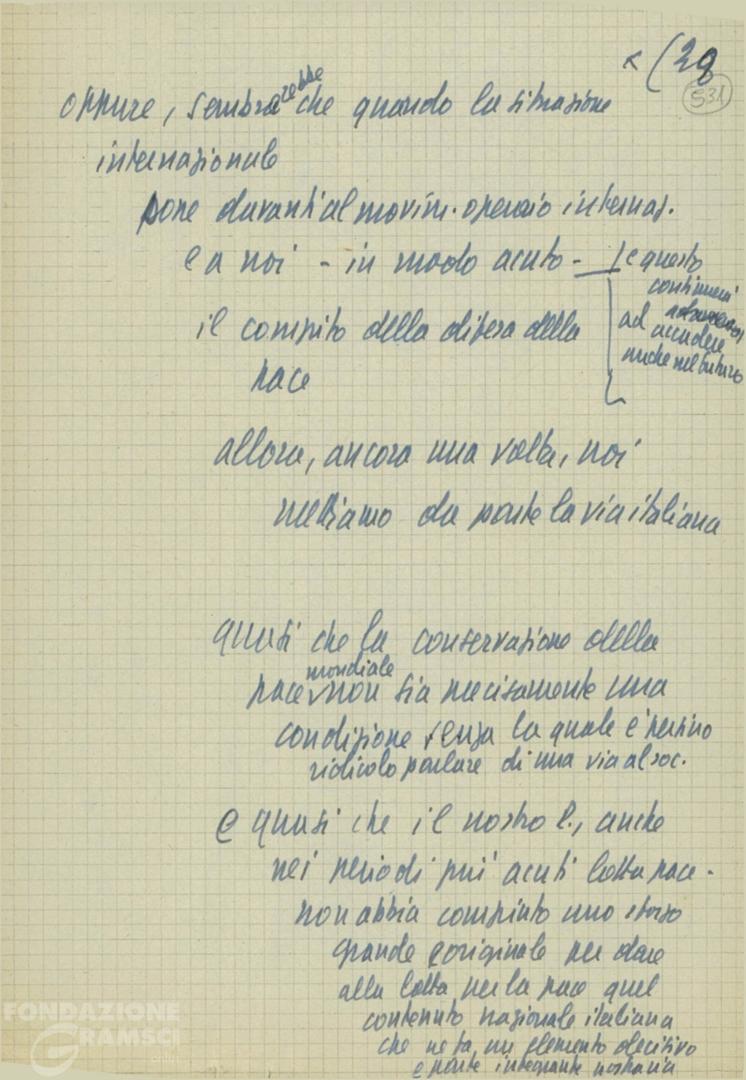 x (28
531
oppure, sembrerebbe che quando la situazione
internazionale
pone davanti al movim. operaio internaz.
e a noi - in modo acuto -
e questo
continuerà
ad accadere
anche nel futuro
il compito della difesa della
pace
allora, ancora una volta, noi
mettiamo da parte la via italiana
quasi che la conservazione della
pace mondiale non sia precisamente una
condizione senza la quale è persino
ridicolo parlare di una via al soc.
e quasi che il nostro P., anche
nei periodi più acuti lotta pace -
non abbia compiuto uno sforzo
grande e originale per dare
alla lotta per la pace quel
contenuto nazionale italiano
che ne fa, un elemento decisivo
e parte integrante nostra via
FONDAZIONE
GRAMSCI